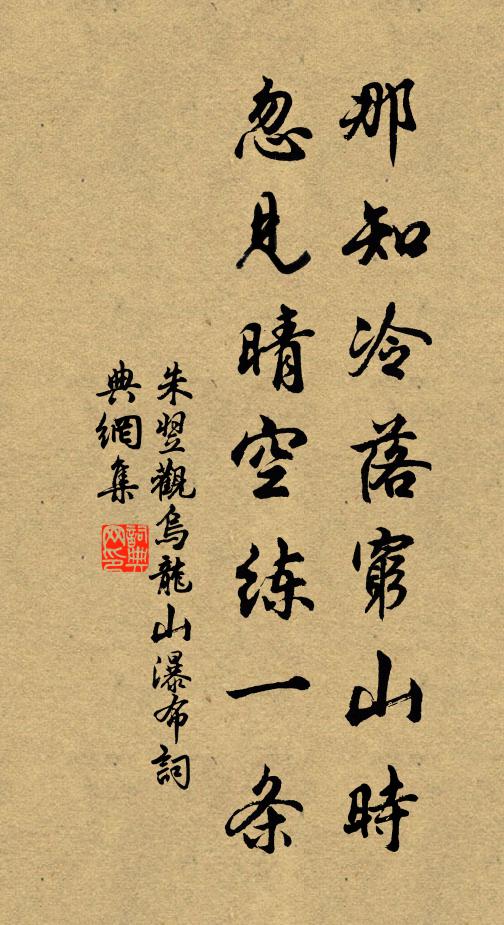 那知冷落窮山時
忽見晴空练一条
朱翌觀烏龍山瀑布詞
典網集
詞典
网印